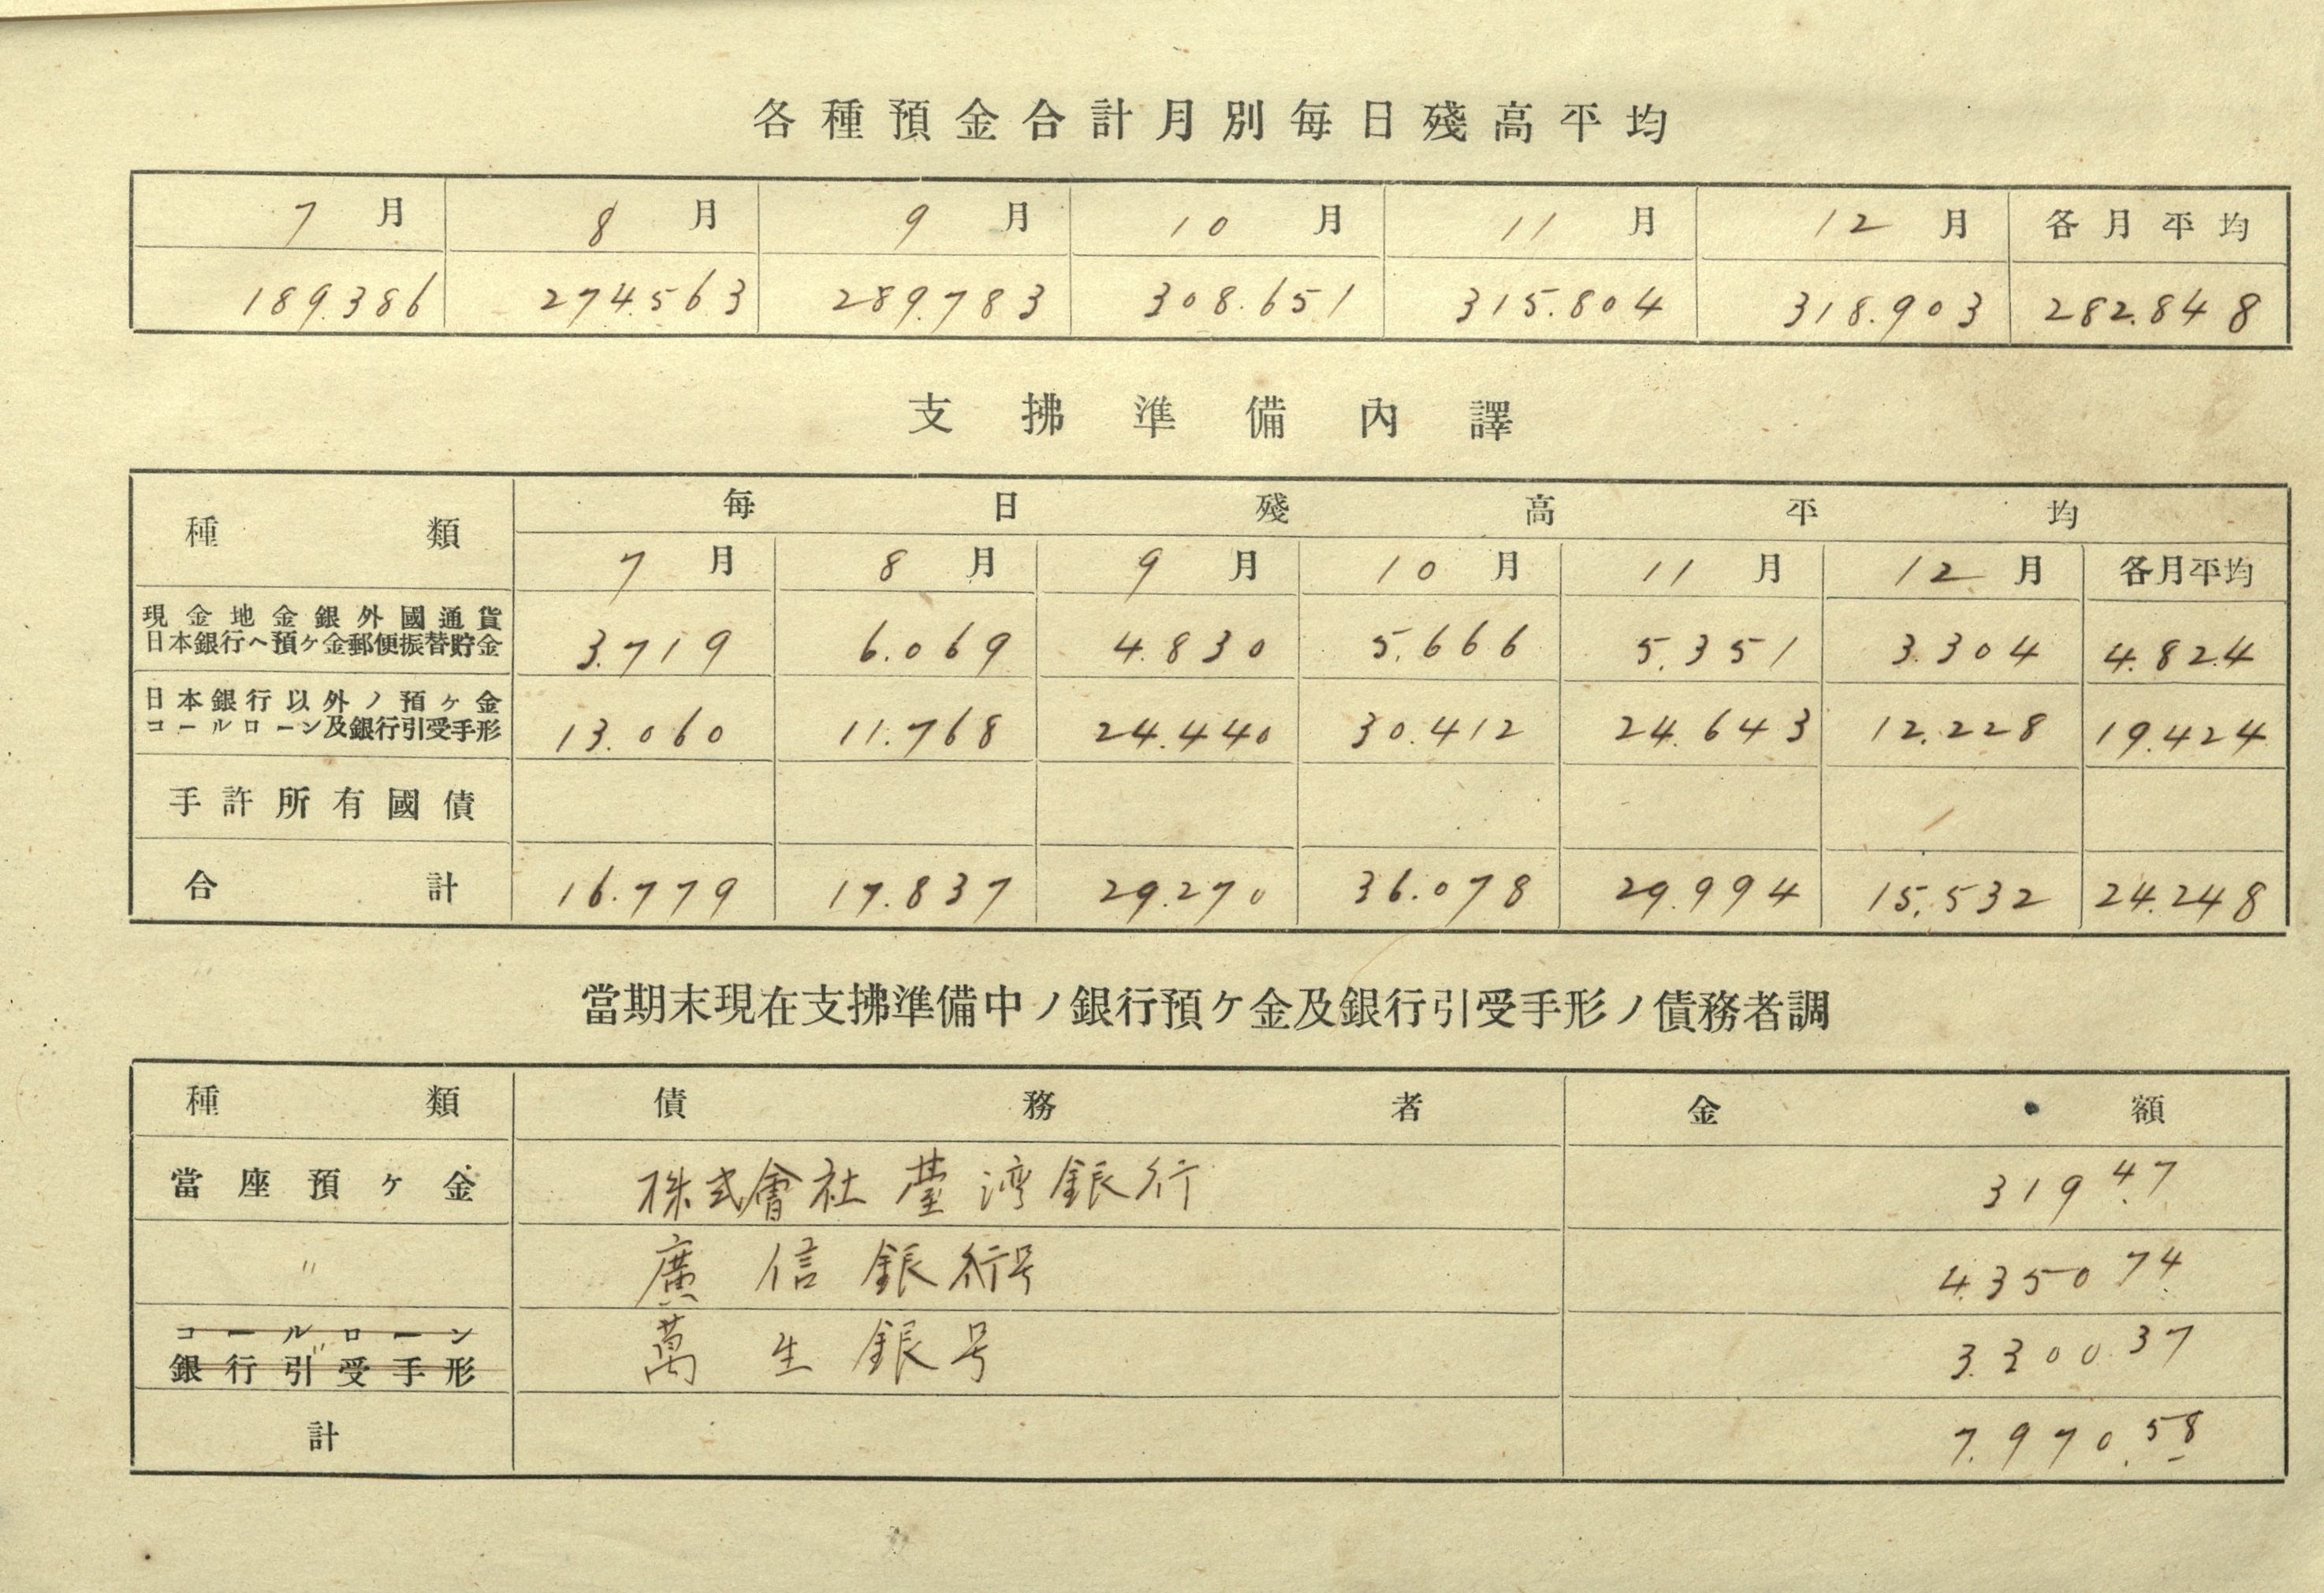 各種預金合計月別每日殘高平均
7月 8月 9月 10月 11月 12月 各月平均
189.386 274.563 289.783 308.651 315.804 318.903 282.848
支拂準備內譯
種類 每日殘高平均
7月 8月 9月 10月 11月 12月 各月平均
現金地金銀外國通貨
日本銀行ヘ預ケ金郵便振替貯金 3.719 6.069 4.830 5.666 5.351 3.304 4.824
日本銀行以外ノ預ケ金
コールローン及銀行引受手形 13.060 11.768 24.440 30.412 24.643 12.228 19.424
手許所有國債
合計 16.779 17.837 29.270 36.078 29.994 15.532 24.248
當期末現在支拂準備中ノ銀行預ケ金及銀行引受手形ノ債務者調
種類 債務者 金額
當座預ケ金 株式會社臺湾銀行 319.47
〃 廣信銀行号 4.350.74
コールローン
〃
銀行引受手形 萬生銀号 3.300.37
計 7.970.58